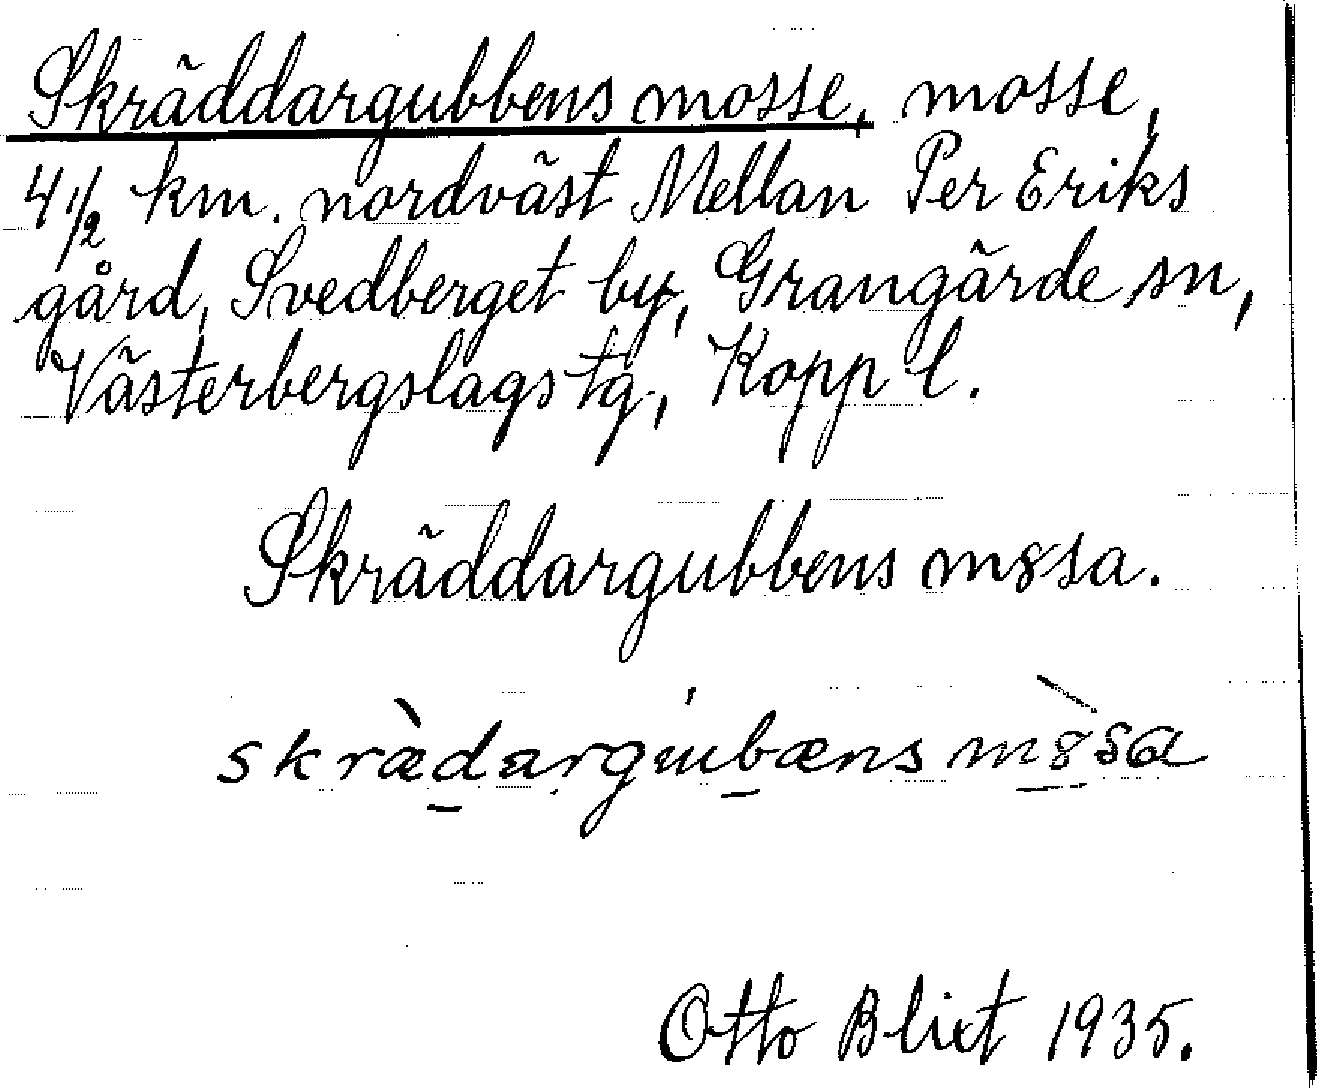 Skräddargubbens mosse, mosse,
4 1/2 km. nordväst Mellan Per Eriks
gård, Svedberget by, Grangärde sn,
Västerbergslags tg, Kopp l.
Skräddargubbens m8sa.
skræ̀dargu̍bæns m8̀sa
Otto Blixt 1935.